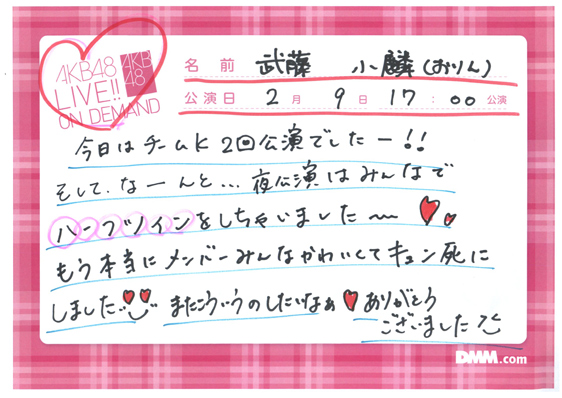 AKB48
LIVE!!
ON DEMAND
AKB
48
名前 武藤 小麟(おりん)
公演日 2月 9日 17:00公演
今日はチームK 2回公演でしたー!!
そして、なーんと…夜公演はみんなで
ハーフツインをしちゃいました〜
もう本当にメンバーみんなかわいくてキュン死に
しました
またこういうのしたいなぁ
ありがとう
ございました
DMM.com